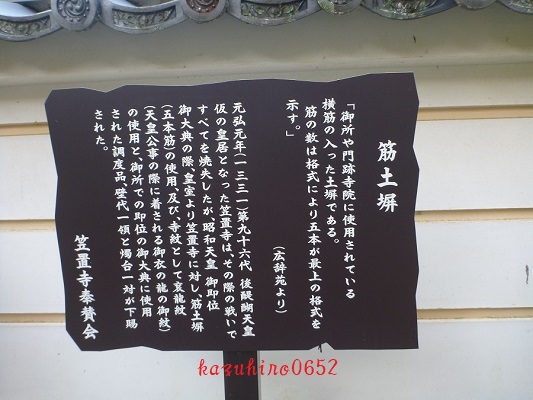 筋土塀
「御所や門跡寺院に使用されている
横筋の入った土塀である。
筋の数は格式により五本が最上の格式を
示す。」
(広辞苑より)
元弘元年(一三三一)第九十六代 後醍醐天皇
仮の皇居となった笠置寺は、その際の戦いで
すべてを焼失したが、昭和天皇 御即位
御大典の際、皇室より笠置寺に対し、筋土塀
(五本筋)の使用、及び、寺紋として哀龍紋
(天皇公事の際に着される御衣の龍の御紋)
の使用と、御所での即位の御大典に使用
された調度品、壁代一領と燭台一対が下賜
された。
笠置寺奉賛会
kazuhiro0652